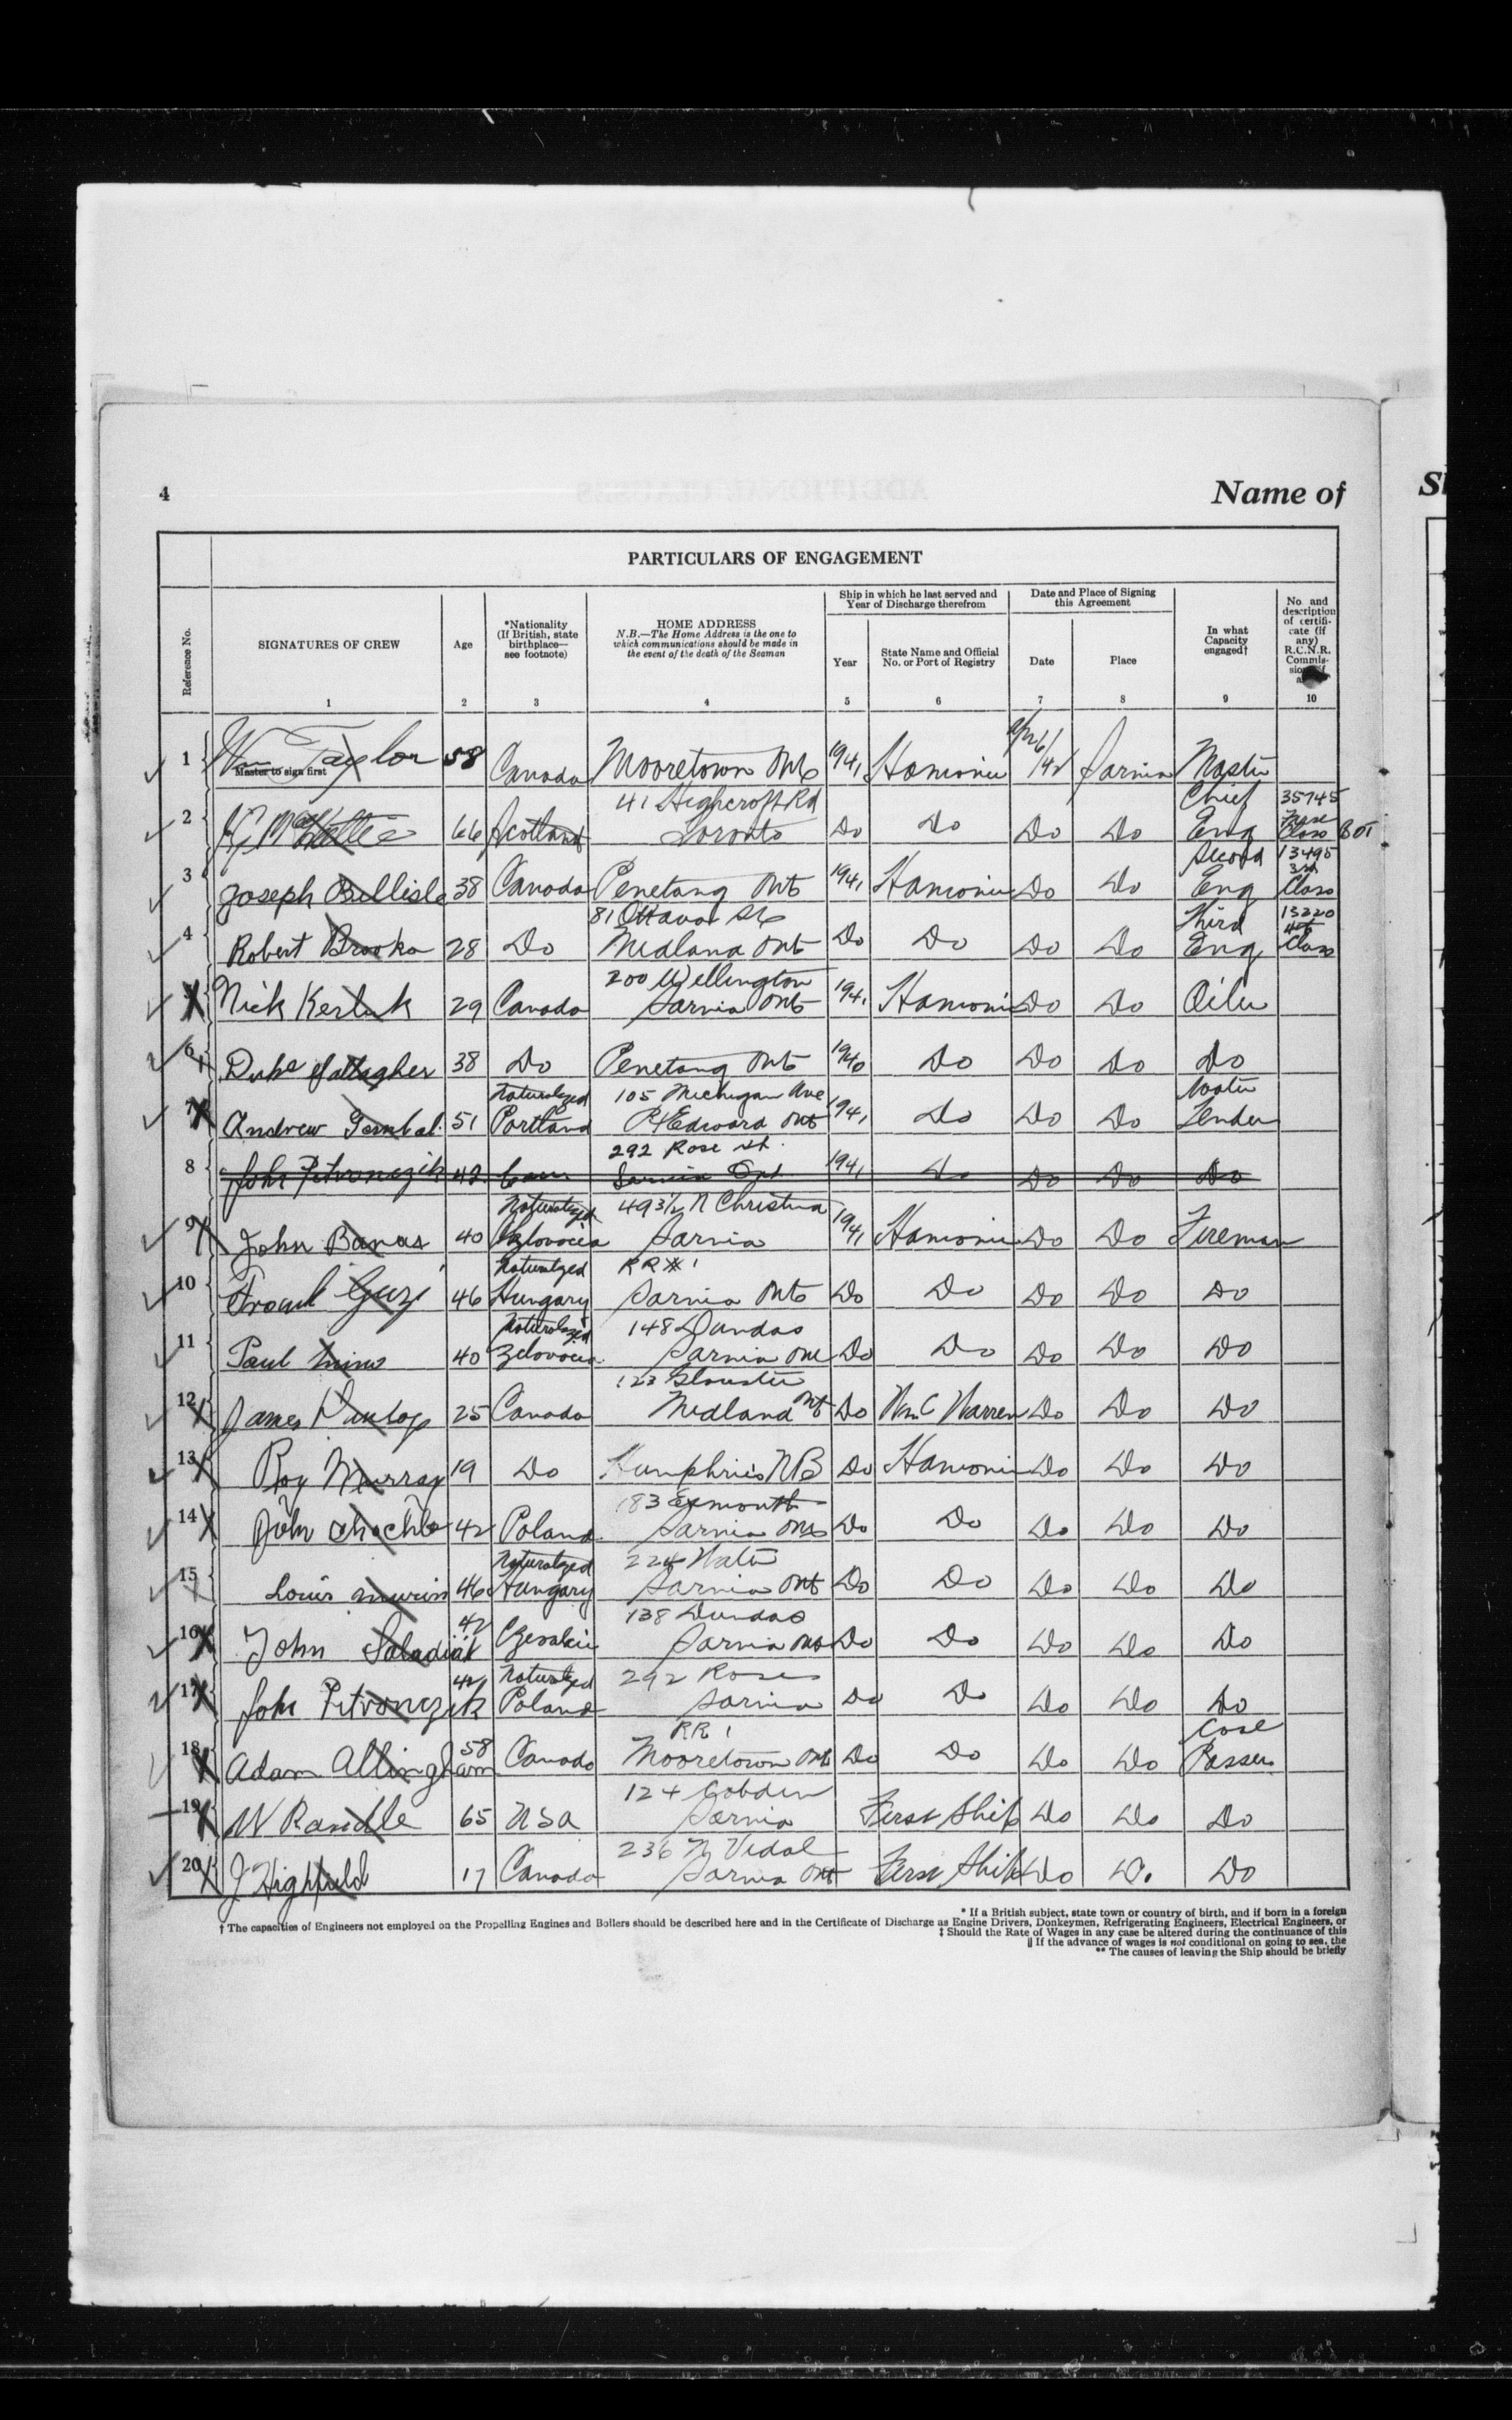 4
Name of
PARTICULARS OF ENGAGEMENT
Reference No.
SIGNATURES OF CREW
Age
*Nationality
(If British, state
birthplace—
see footnote)
HOME ADDRESS
N.B.—The Home Address is the one to
which communications should be made in
the event of the death of the Seaman
Ship in which he last served and
Year of Discharge therefrom
Year
State Name and Official
No. or Port of Registry
Date and Place of Signing
this Agreement
Date
Place
In what
Capacity
engaged†
No. and
description
of certifi-
cate (if
any)
R.C.N.R.
Commis-
1 2 3 4 5 6 7 8 9 10
1 Wm Taylor 58 Canada Mooretown Ont 1941 Hamonic Sarnia Master
Master to sign first
41 Highcroft Rd Chief 35745
2 66 Scotland Toronto Do Do Do Do Eng Class BOT
Second 13495
3 Joseph Bellisle 38 Canada Penetang Ont 1941 Hamonic Do Do Eng 3rd Class
81 Ottawa St Third 13220
4 Robert Brooks 28 Do Midland Ont Do Do Do Do Eng 4th Class
200 Wellington
Nick Kerluk 29 Canada Sarnia Ont 1941 Hamonic Do Do Oiler
6 Duke Gallagher 38 Do Penetang Ont 1940 Do Do Do Do
Naturalized 105 Michigan Ave Water
7 Andrew 51 Portland Pt Edward Ont 1941 Do Do Do Tender
292 Rose St.
8 John Petronczik 42 Sarnia Ont 1941 Do Do Do Do
Naturalized 493½ N Christina
9 John Banas 40 Sarnia 1941 Hamonic Do Do Fireman
Naturalized RR # 1
10 46 Hungary Sarnia Ont Do Do Do Do Do
Naturalized 148 Dundas
11 Paul 40 Sarnia Ont Do Do Do Do Do
123
12 James Dunlop 25 Canada Midland Ont Do Wm C Warren Do Do Do
13 Roy Murray 19 Do Humphries NB Do Hamonic Do Do Do
183 Exmouth
14 John 42 Poland Sarnia Ont Do Do Do Do Do
Naturalized 224 Water
15 Louis 46 Hungary Sarnia Ont Do Do Do Do Do
138 Dundas
16 John Saladiak 42 Sarnia Ont Do Do Do Do Do
Naturalized 292 Rose
17 John Petronczik 42 Poland Sarnia Do Do Do Do Do
RR 1 Coal
18 Adam Allingham 58 Canada Mooretown Ont Do Do Do Do Passer
124 Cobden
19 W Randle 65 USA Sarnia First Ship Do Do Do
236 N Vidal
20 J Highfield 17 Canada Sarnia Ont First Ship Do Do Do
* If a British subject, state town or country of birth, and if born in a foreign
† The capacities of Engineers not employed on the Propelling Engines and Boilers should be described here and in the Certificate of Discharge as Engine Drivers, Donkeymen, Refrigerating Engineers, Electrical Engineers, or
‡ Should the Rate of Wages in any case be altered during the continuance of this
|| If the advance of wages is not conditional on going to sea, the
** The causes of leaving the Ship should be briefly